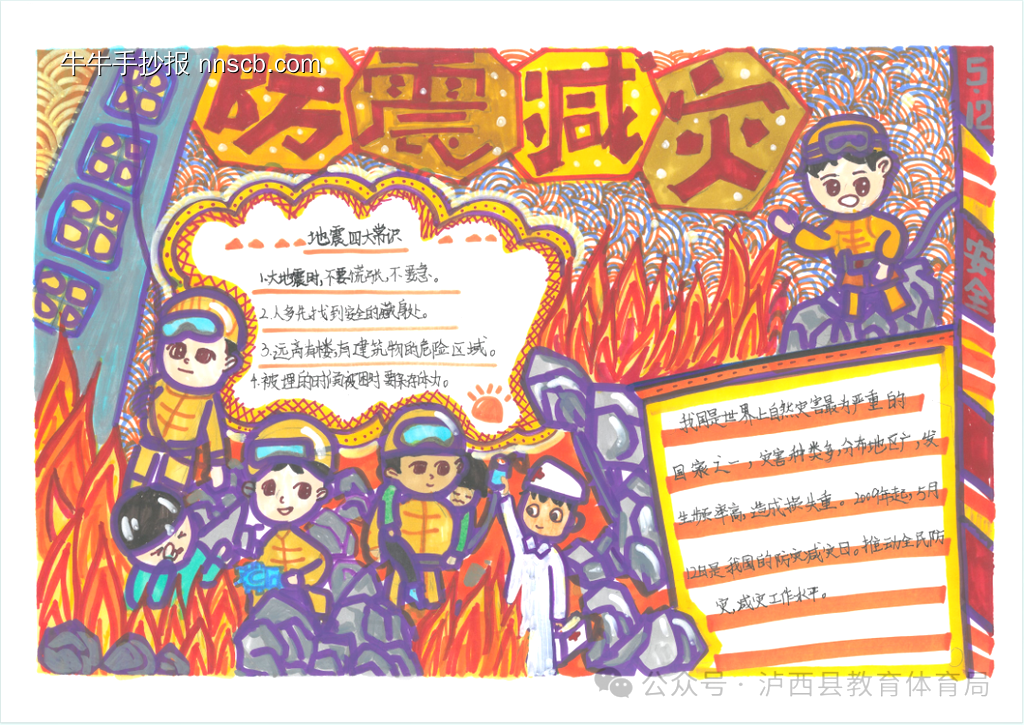 牛牛手抄报 nnscb.com
防震减灾
5.12
安全
地震四大常识
1.大地震时,不要慌张,不要急。
2.人多先才找到安全的藏身处。
3.远离楼,有建筑物的危险区域。
4.被埋的时候被困时要保存体力。
我国是世界上自然灾害最为严重的
国家之一,灾害种类多,分布地区广,发
生频率高,造成损失重。2009年起,5月
12日是我国的防灾减灾日。推动全民防
灾,减灾工作水平。
公众号·泸西县教育体育局